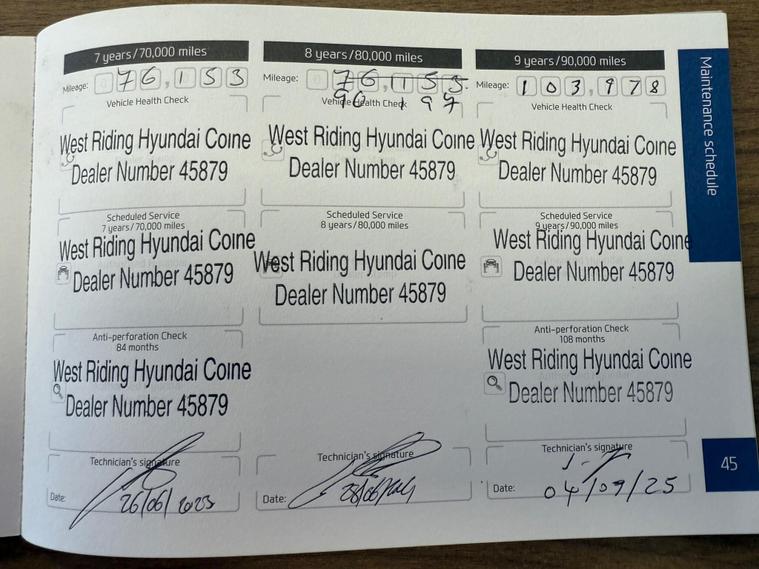 7 years/70,000 miles
Mileage: 076,153
Vehicle Health Check
West Riding Hyundai Colne
Dealer Number 45879
Scheduled Service
7 years/70,000 miles
West Riding Hyundai Colne
Dealer Number 45879
Anti-perforation Check
84 months
West Riding Hyundai Colne
Dealer Number 45879
Technician's signature
Date: 26/06/2023
8 years/80,000 miles
Mileage: 076,153
Vehicle Health Check
West Riding Hyundai Colne
Dealer Number 45879
Scheduled Service
8 years/80,000 miles
West Riding Hyundai Colne
Dealer Number 45879
Technician's signature
Date:
9 years/90,000 miles
Mileage: 103,978
Vehicle Health Check
West Riding Hyundai Colne
Dealer Number 45879
Scheduled Service
9 years/90,000 miles
West Riding Hyundai Colne
Dealer Number 45879
Anti-perforation Check
108 months
West Riding Hyundai Colne
Dealer Number 45879
Technician's signature
Date: 04/09/25
Maintenance schedule
45